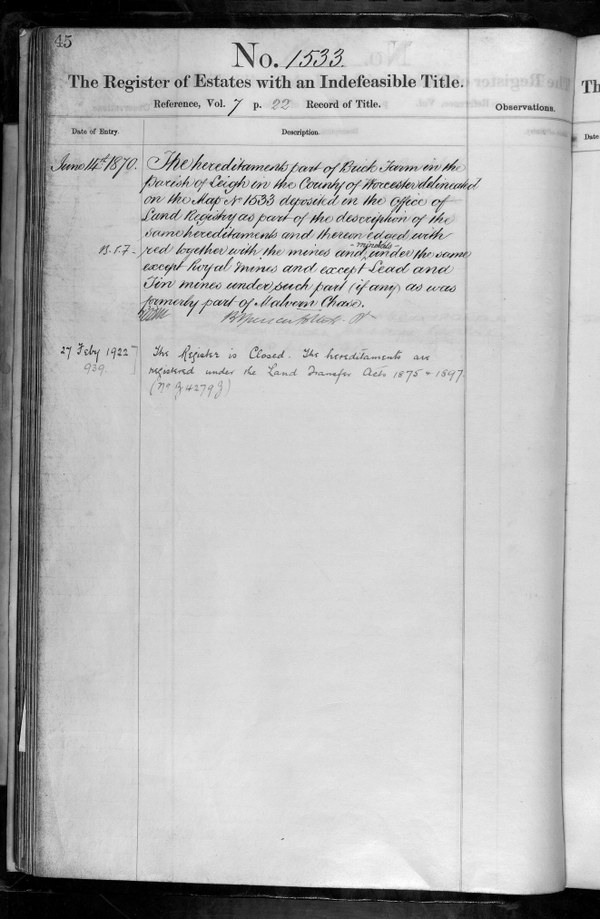 45
No. 1533.
The Register of Estates with an Indefeasible Title.
Reference, Vol. 7 p. 22 Record of Title.
Observations.
Date of Entry.
Description.
June 14th 1870.
The hereditaments part of Brick Farm in the
parish of Leigh in the County of Worcester delineated
on the Map No 1533 deposited in the Office of
Land Registry as part of the description of the
same hereditaments and thereon edged with
red together with the mines and minerals under the same
except Royal Mines and except Lead and
Tin mines under such part (if any) as was
formerly part of Malvern Chase.
27 Feby 1922
939.
The Register is Closed. The hereditaments are
registered under the Land Transfer Acts 1875 & 1897.
Th
Date